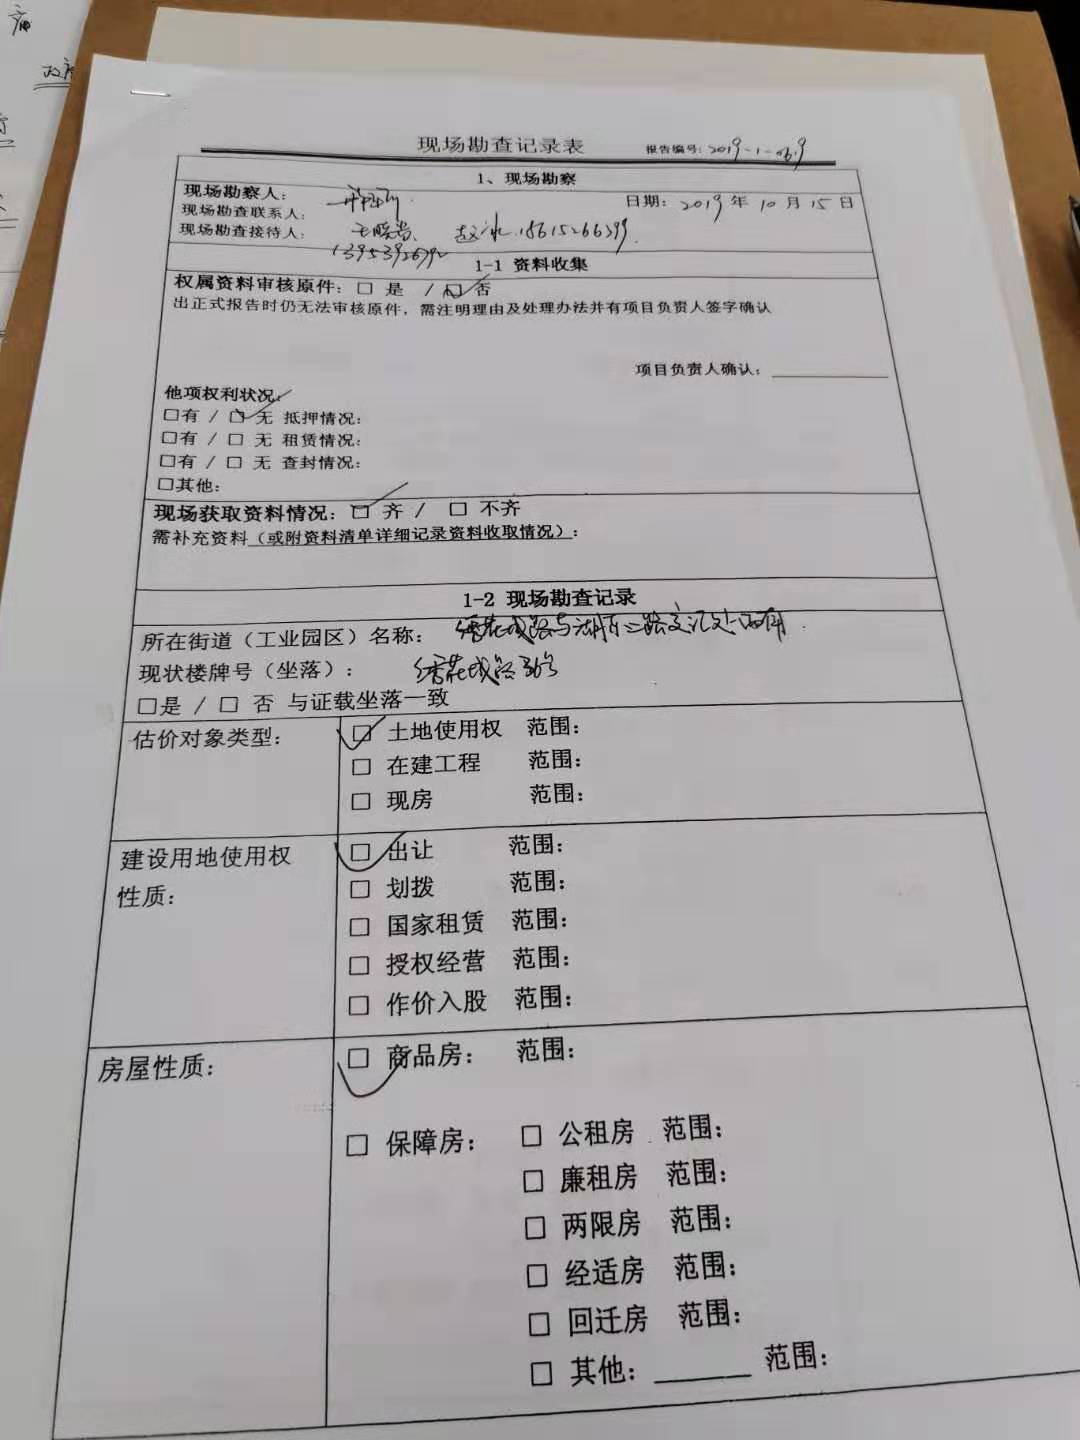 现场勘查记录表 报告编号:2019-1-
1、现场勘察
现场勘察人: 日期: 2019年10月15日
现场勘查联系人:
现场勘查接待人: 赵冰 18615266399
13953926792
1-1 资料收集
权属资料审核原件: □ 是 / □ 否
出正式报告时仍无法审核原件，需注明理由及处理办法并有项目负责人签字确认
项目负责人确认:
他项权利状况:
□有 / □ 无 抵押情况:
□有 / □ 无 租赁情况:
□有 / □ 无 查封情况:
□其他:
现场获取资料情况: □ 齐 / □ 不齐
需补充资料（或附资料清单详细记录资料收取情况）:
1-2 现场勘查记录
所在街道（工业园区）名称: 路与湖东二路交汇处西南
现状楼牌号（坐落）:
□是 / □ 否 与证载坐落一致
估价对象类型: □ 土地使用权 范围:
□ 在建工程 范围:
□ 现房 范围:
建设用地使用权 □ 出让 范围:
性质: □ 划拨 范围:
□ 国家租赁 范围:
□ 授权经营 范围:
□ 作价入股 范围:
房屋性质: □ 商品房: 范围:
□ 保障房: □ 公租房 范围:
□ 廉租房 范围:
□ 两限房 范围:
□ 经适房 范围:
□ 回迁房 范围:
□ 其他:______ 范围: